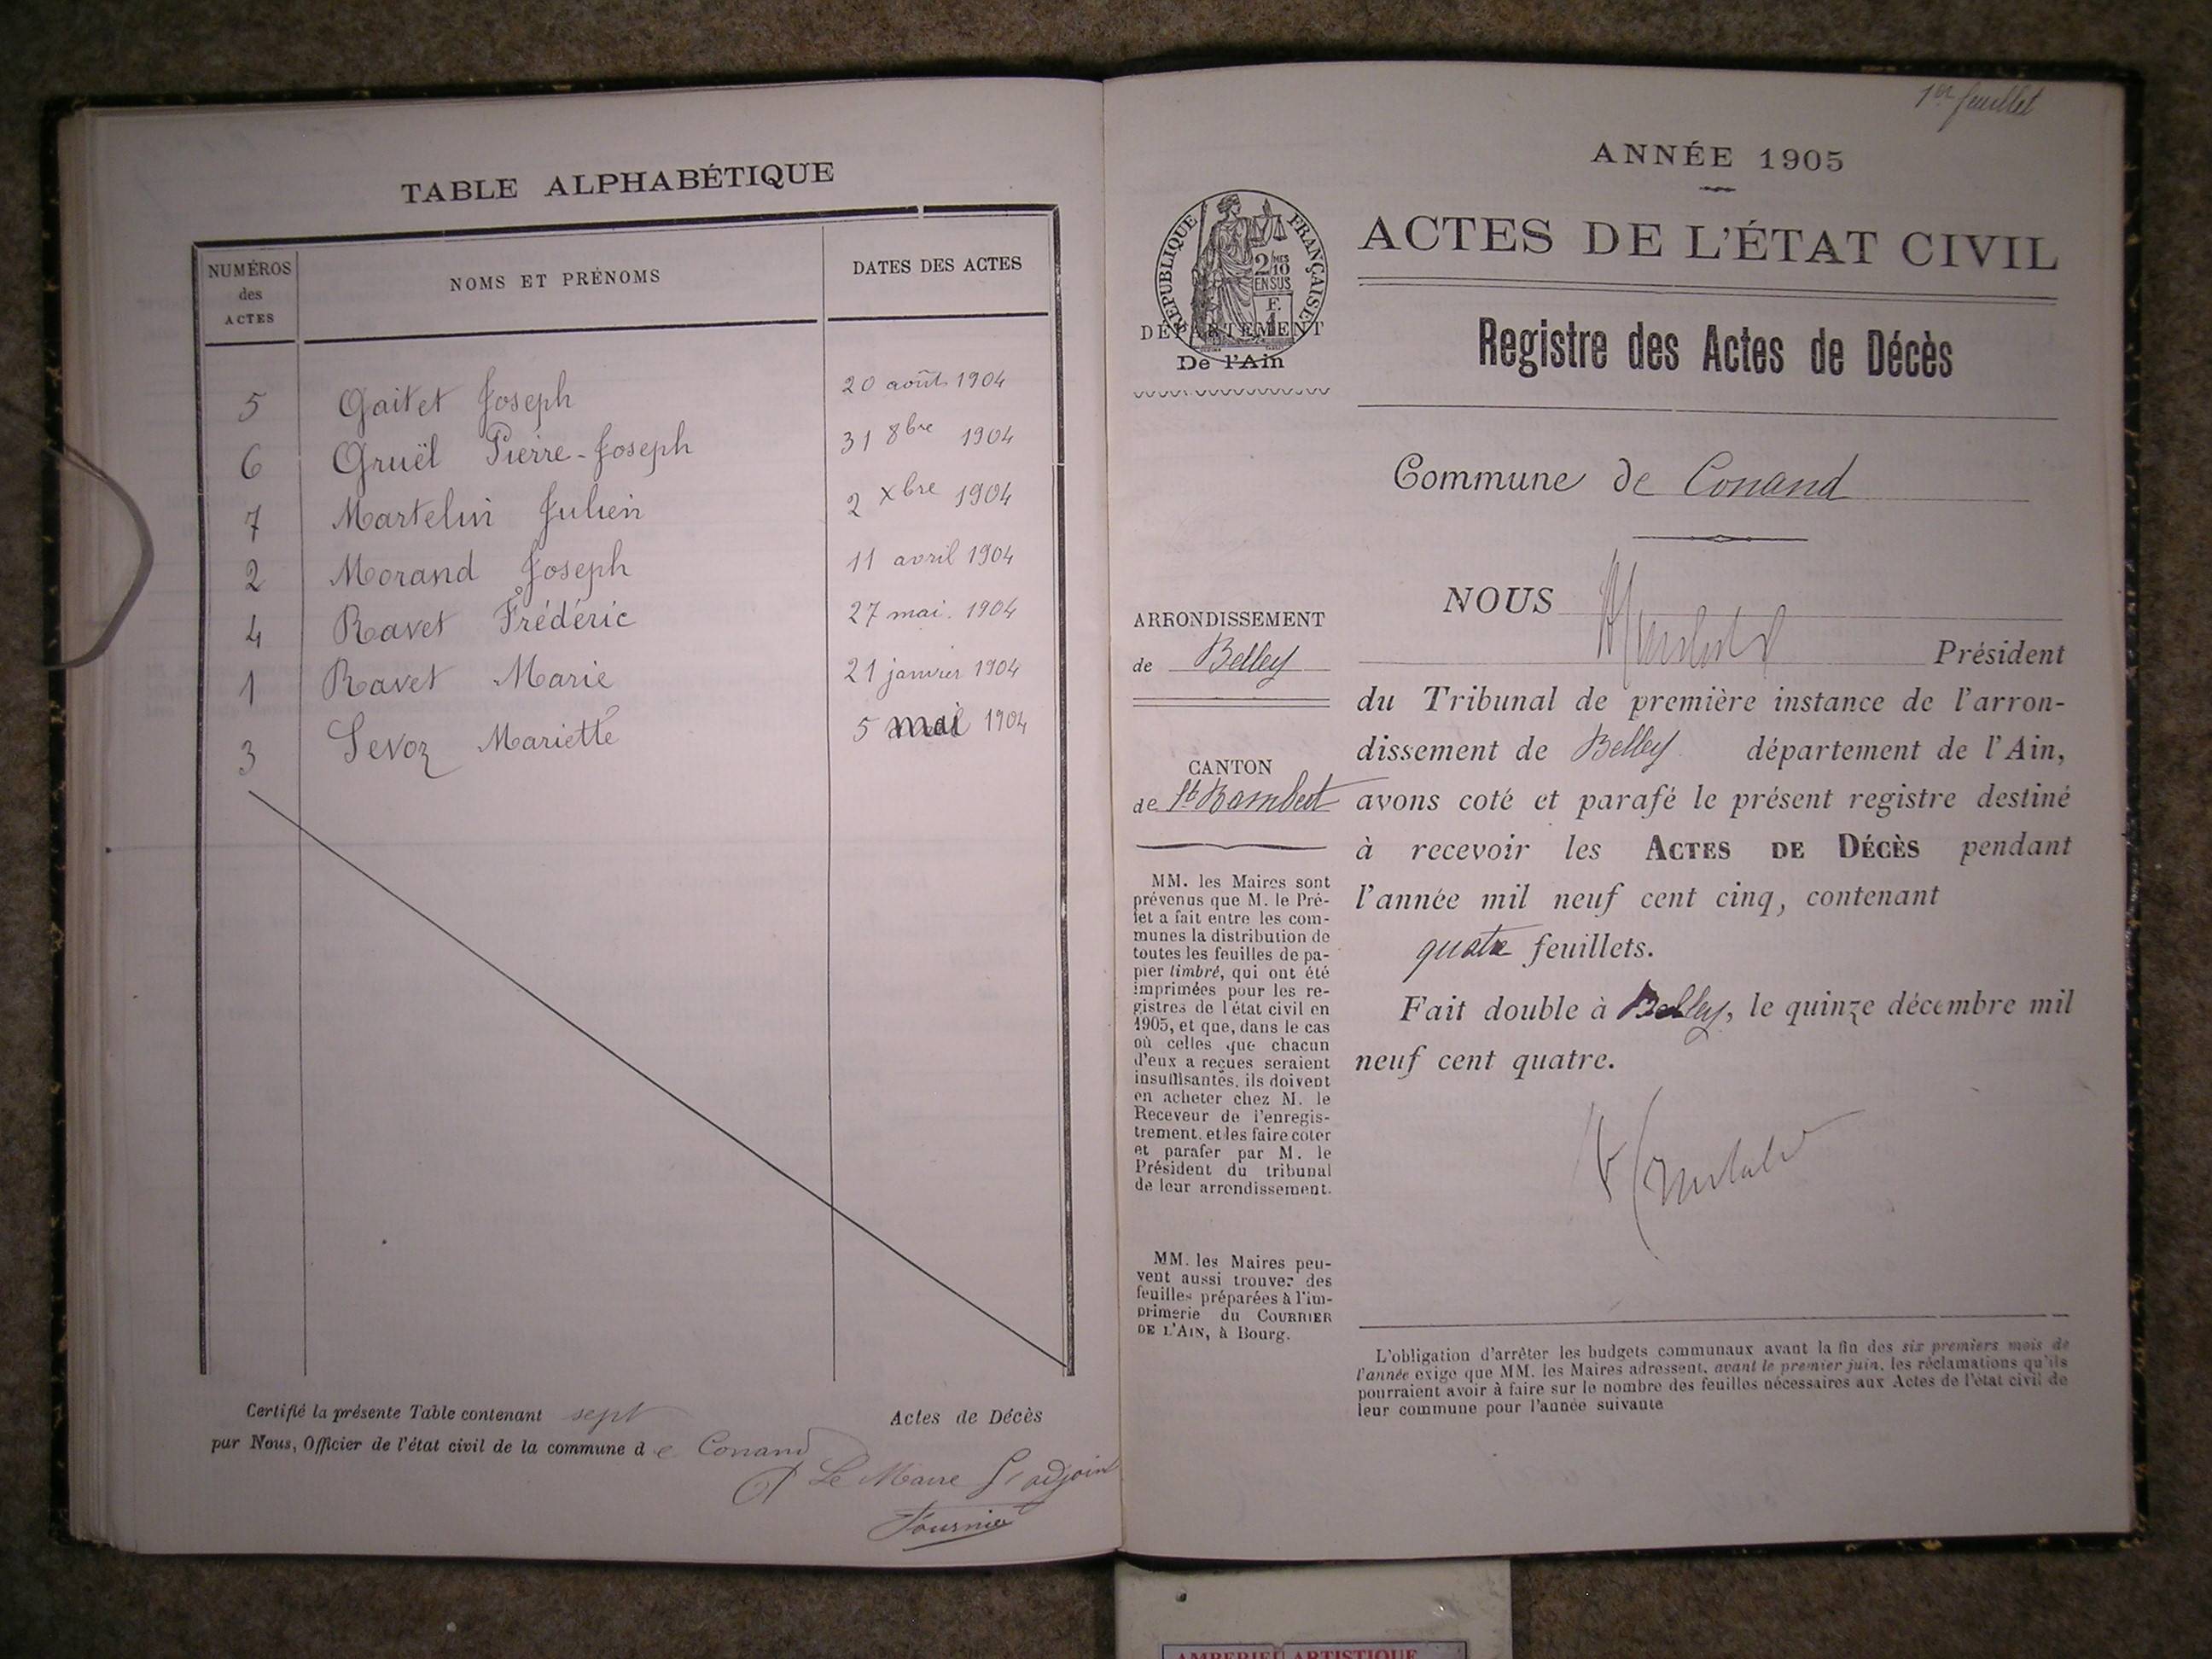 TABLE ALPHABÉTIQUE
NUMÉROS des ACTES
NOMS ET PRÉNOMS
DATES DES ACTES
5 Gaitet Joseph 20 août 1904
6 Gruël Pierre-Joseph 31 8bre 1904
7 Martelin Julien 2 xbre 1904
2 Morand Joseph 11 avril 1904
4 Ravet Frédéric 27 mai. 1904
1 Ravet Marie 21 janvier 1904
3 Sevoz Mariette 5 mai 1904
Certifié la présente Table contenant sept Actes de Décès
par Nous, Officier de l'état civil de la commune de Conand
Le Maire L'adjoint
Fournier
1er feuillet
ANNÉE 1905
ACTES DE L'ÉTAT CIVIL
RÉPUBLIQUE FRANÇAISE
2/10 MES
EN SUS
F.
1
DÉPARTEMENT
De l'Ain
Registre des Actes de Décès
Commune de Conand
ARRONDISSEMENT
de Belley
CANTON
de St Rambert
MM. les Maires sont
prévenus que M. le Pré-
fet a fait entre les com-
munes la distribution de
toutes les feuilles de pa-
pier timbré, qui ont été
imprimées pour les re-
gistres de l'état civil en
1905, et que, dans le cas
où celles que chacun
d'eux a reçues seraient
insuffisantes, ils doivent
en acheter chez M. le
Receveur de l'enregis-
trement, et les faire coter
et parafer par M. le
Président du tribunal
de leur arrondissement.
MM. les Maires peu-
vent aussi trouver des
feuilles préparées à l'im-
primerie du COURRIER
DE L'AIN, à Bourg.
NOUS
Président
du Tribunal de première instance de l'arron-
dissement de Belley département de l'Ain,
avons coté et parafé le présent registre destiné
à recevoir les ACTES DE DÉCÈS pendant
l'année mil neuf cent cinq, contenant
quatre feuillets.
Fait double à Belley, le quinze décembre mil
neuf cent quatre.
L'obligation d'arrêter les budgets communaux avant la fin des six premiers mois de
l'année exige que MM. les Maires adressent, avant le premier juin, les réclamations qu'ils
pourraient avoir à faire sur le nombre des feuilles nécessaires aux Actes de l'état civil de
leur commune pour l'année suivante
AMBERIEU ARTISTIQUE